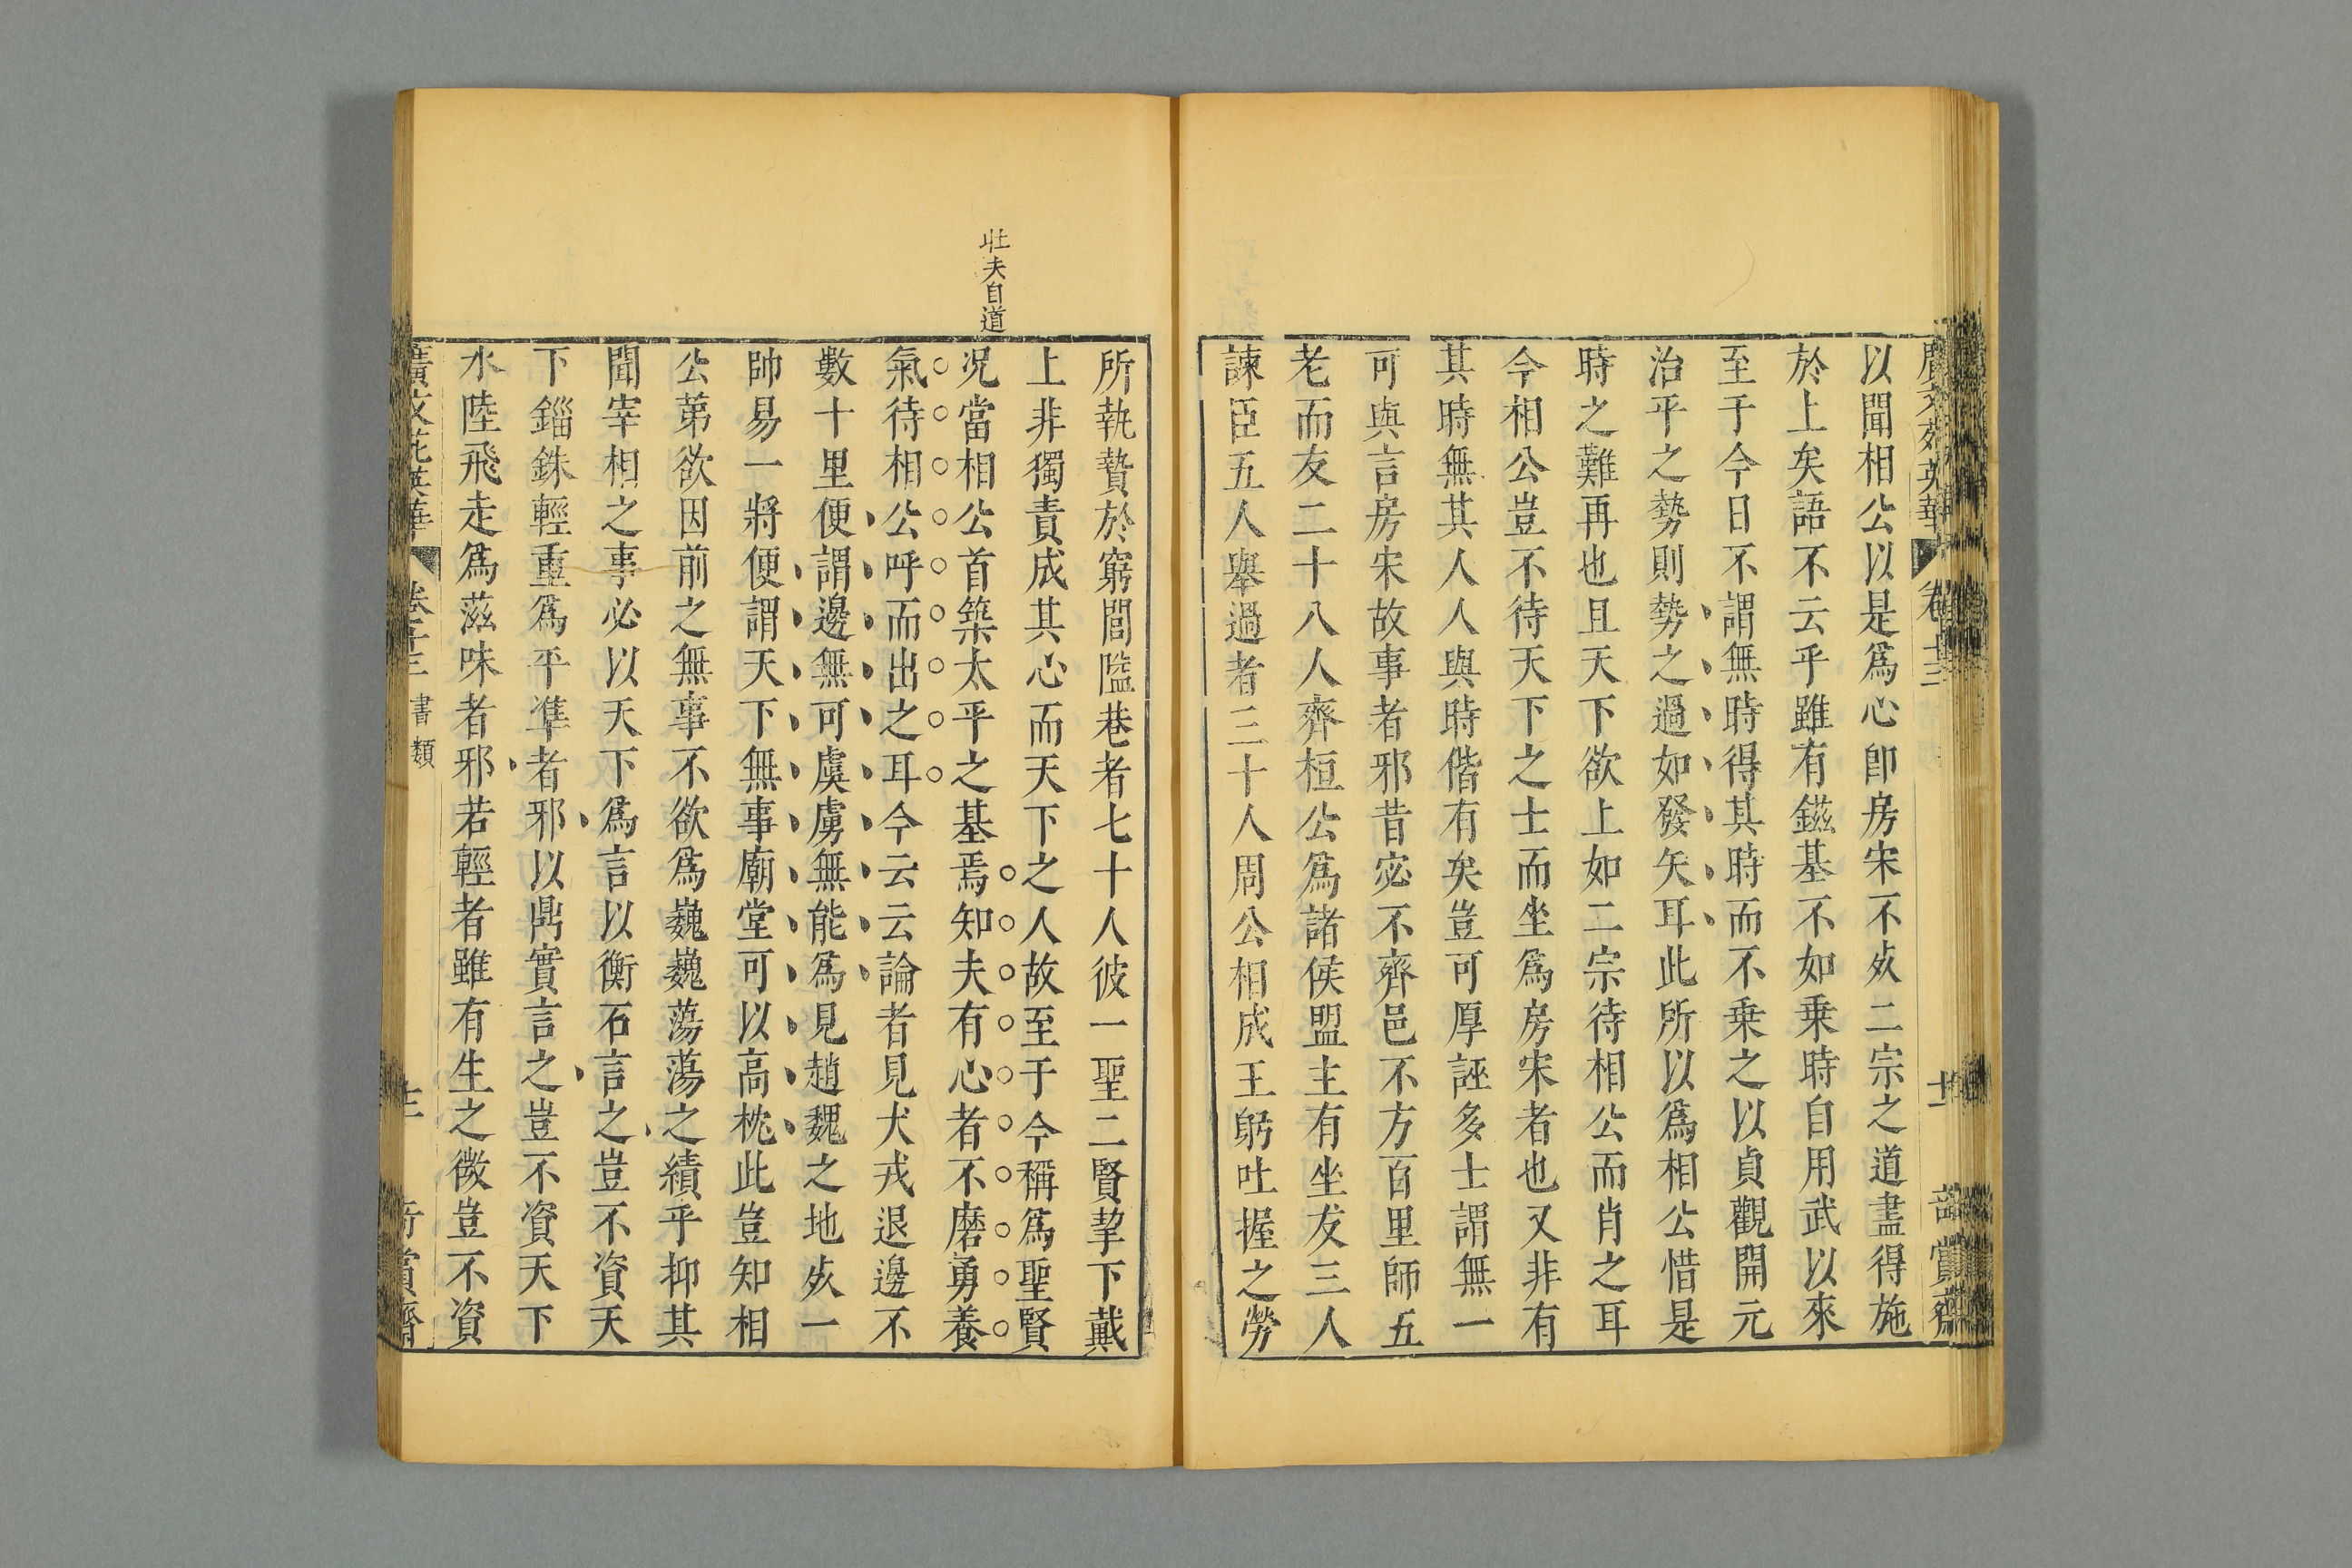 以聞相公以是爲心卽房宋不㱥二宗之道盡得施
於上矣語不云乎雖有鎡基不如乗時自用武以來
至于今日不謂無時得其時而不乗之以貞觀開元
治平之勢則勢之過如發矢耳此所以爲相公惜是
時之難再也且天下欲上如二宗待相公而肖之耳
今相公豈不待天下之士而坐爲房宋者也又非有
其時無其人人與時偕有矣豈可厚誣多士謂無一
可與言房宋故事者邪昔宓不齊邑不方百里師五
老而友二十八人齊桓公爲諸侯盟主有坐友三人
諫臣五人舉過者三十人周公相成王躬吐握之勞
所執贄於窮閭隘巷者七十人彼一聖二賢挈下戴
上非獨責成其心而天下之人故至于今稱爲聖賢
况當相公首築太平之基焉知夫有心者不磨勇養
氣待相公呼而出之耳今云云論者見犬戎退邊不
數十里便謂邊無可虞虜無能爲見趙魏之地㱥一
帥易一將便謂天下無事廟堂可以高枕此豈知相
公第欲因前之無事不欲爲巍巍蕩蕩之績乎抑其
聞宰相之事必以天下爲言以衡石言之豈不資天
下錙銖輕重爲平凖者邪以鼎實言之豈不資天下
水陸飛走爲滋味者邪若輕者雖有生之微豈不資
壯夫自道
廣文苑英華 卷十三 書類 奇賞齋